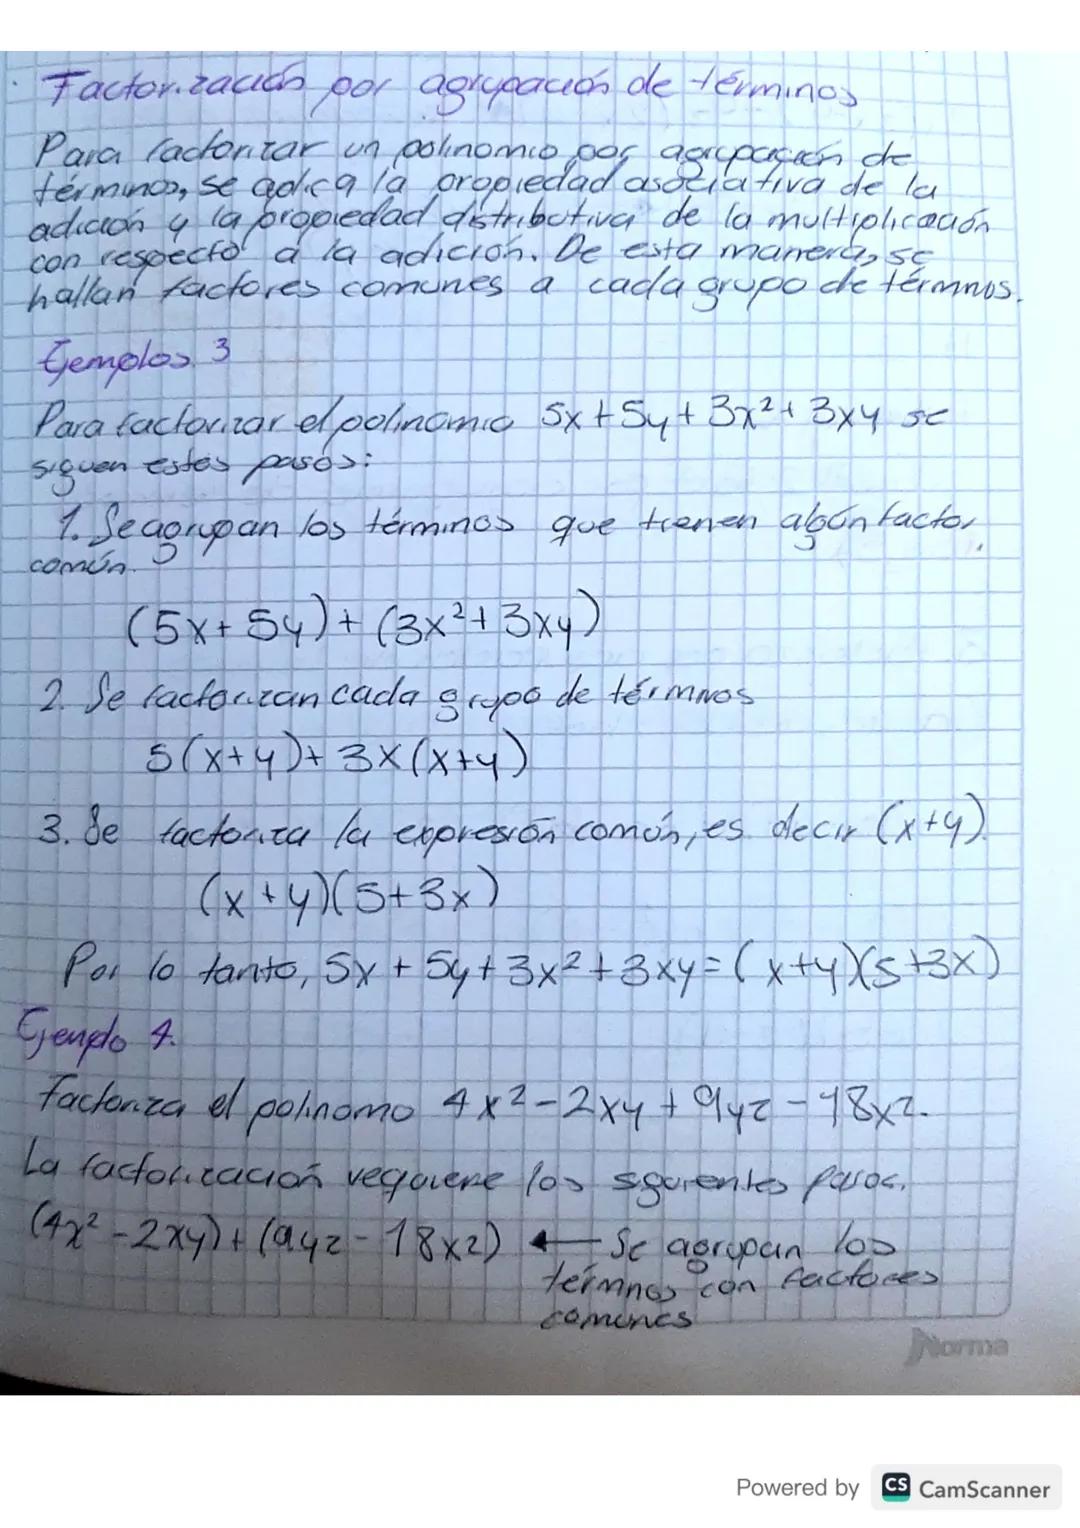 Factorización por agrupación de términos
Para factorizar un polinomio por agrupación de
términos, se aplica la propiedad asociativa de la
adición y la propiedad distributiva de la multiplicación
con respecto a la adición. De esta manera, se
hallan factores comunes a cada grupo de términos.
Ejemplos 3
Para factorizar el polinomio 5x + 5y + 3x² + 3xy se
siguen estos pasos:
1. Se agrupan los términos que tienen algún factor
común.
(5x + 5y) + (3x² + 3xy)
2. Se factorizan cada grupo de términos
5(x+y) + 3x(x+y)
3. Se factoriza la expresión común, es decir (x+y).
(x+y)(5+3x)
Por lo tanto, 5x + 5y + 3x² + 3xy = (x+y)(5+3x)
Ejemplo 4.
Factoriza el polinomo 4x² - 2xy + 9yz - 18xz.
La factorización requiere los siguientes pasos.
(4x² - 2xy) + (9yz - 18xz) ← Se agrupan los
términos con factores
comunes
Norma
Powered by CS CamScanner